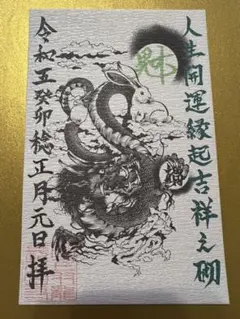 人生開運縁起吉祥之砌
令和五癸卯稔正月元日 拝